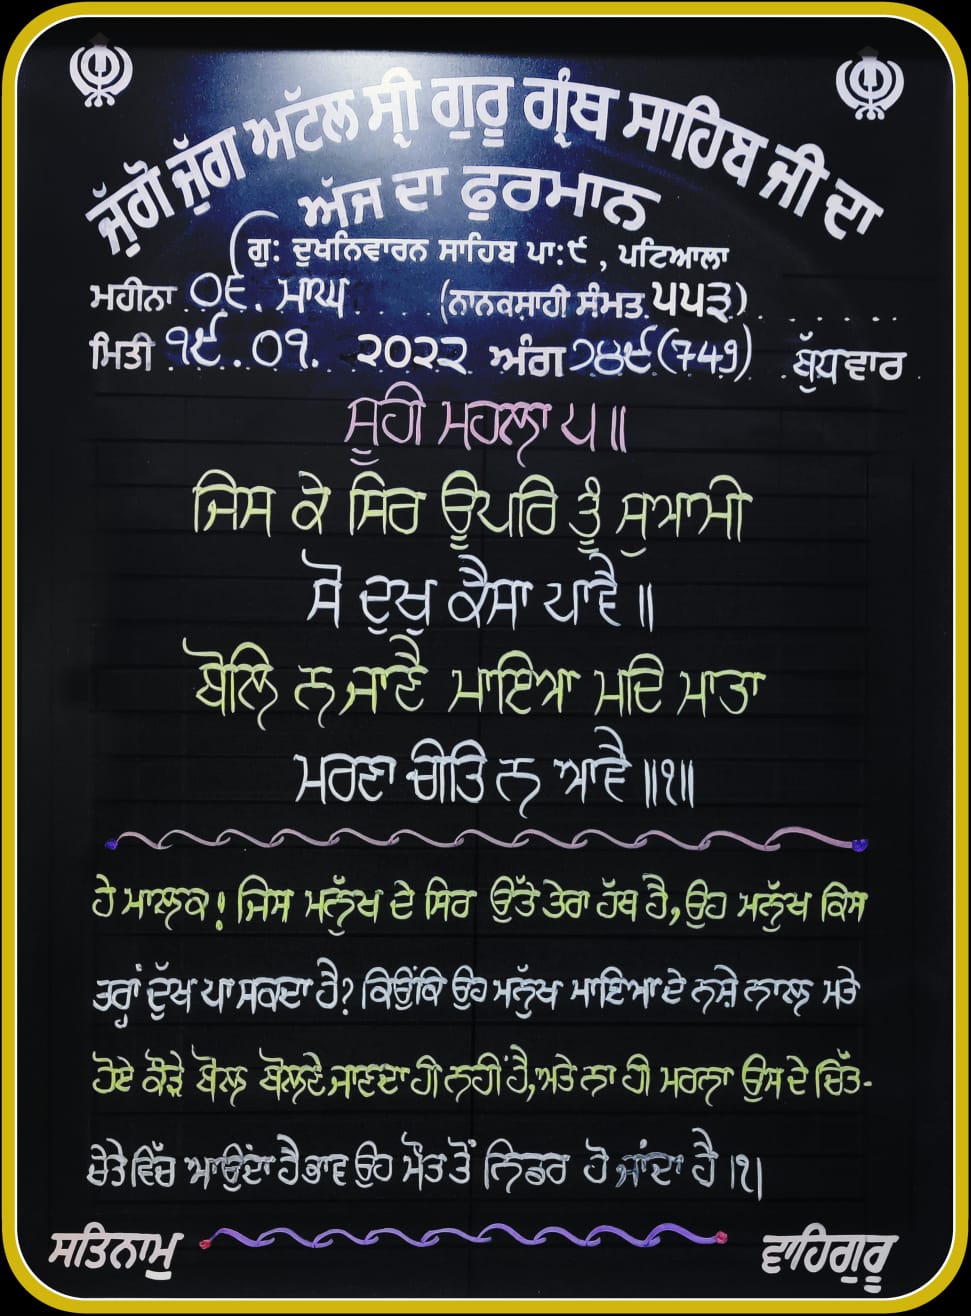 ਜੁੱਗੋ ਜੁੱਗ ਅਟੱਲ ਸ੍ਰੀ ਗੁਰੂ ਗ੍ਰੰਥ ਸਾਹਿਬ ਜੀ ਦਾ
ਅੱਜ ਦਾ ਫੁਰਮਾਨ
ਗੁ: ਦੁਖਨਿਵਾਰਨ ਸਾਹਿਬ ਪਾ:੯, ਪਟਿਆਲਾ
ਮਹੀਨਾ ੦੬. ਮਾਘ (ਨਾਨਕਸ਼ਾਹੀ ਸੰਮਤ ੫੫੩)
ਮਿਤੀ ੧੯. ੦੧. ੨੦੨੨ ਅੰਗ ੭੪੯ (749) ਬੁੱਧਵਾਰ
ਸੂਹੀ ਮਹਲਾ ੫॥
ਜਿਸ ਕੇ ਸਿਰ ਊਪਰਿ ਤੂੰ ਸੁਆਮੀ
ਸੋ ਦੁਖੁ ਕੈਸਾ ਪਾਵੈ॥
ਬੋਲਿ ਨ ਜਾਣੈ ਮਾਇਆ ਮਦਿ ਮਾਤਾ
ਮਰਣਾ ਚੀਤਿ ਨ ਆਵੈ॥੧॥
ਹੇ ਮਾਲਕ! ਜਿਸ ਮਨੁੱਖ ਦੇ ਸਿਰ ਉੱਤੇ ਤੇਰਾ ਹੱਥ ਹੈ, ਉਹ ਮਨੁੱਖ ਕਿਸ
ਤਰ੍ਹਾਂ ਦੁੱਖ ਪਾ ਸਕਦਾ ਹੈ? ਕਿਉਂਕਿ ਉਹ ਮਨੁੱਖ ਮਾਇਆ ਦੇ ਨਸ਼ੇ ਨਾਲ ਮਤੇ
ਹੋਏ ਕੌੜੇ ਬੋਲ ਬੋਲਣੇ ਜਾਣਦਾ ਹੀ ਨਹੀਂ ਹੈ, ਅਤੇ ਨਾ ਹੀ ਮਰਨਾ ਉਸ ਦੇ ਚਿੱਤ-
ਚੇਤੇ ਵਿੱਚ ਆਉਂਦਾ ਹੈ ਭਾਵ ਉਹ ਮੌਤ ਤੋਂ ਨਿਡਰ ਹੋ ਜਾਂਦਾ ਹੈ।੧।
ਸਤਿਨਾਮੁ ਵਾਹਿਗੁਰੂ